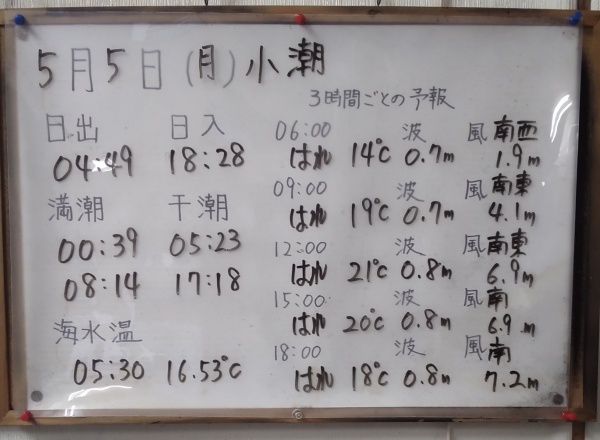 5月5日(月)小潮
3時間ごとの予報
日出 日入
04:49 18:28
満潮 干潮
00:39 05:23
08:14 17:18
海水温
05:30 16.53℃
06:00 波 風 南西
はれ 14℃ 0.7m 1.9m
09:00 波 風 南東
はれ 19℃ 0.7m 4.1m
12:00 波 風 南東
はれ 21℃ 0.8m 6.9m
15:00 波 風 南
はれ 20℃ 0.8m 6.9m
18:00 波 風 南
はれ 18℃ 0.8m 7.2m